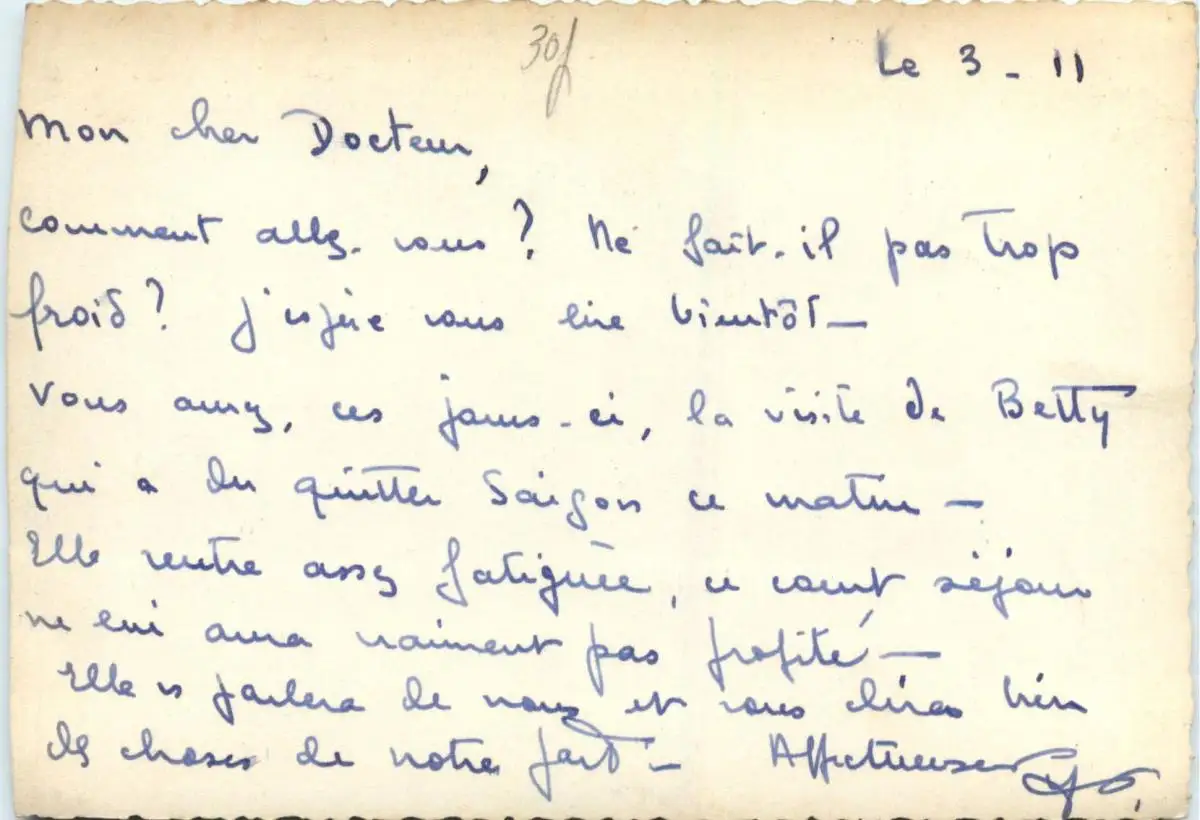 30f
Le 3 - 11
Mon cher Docteur,
comment allez-vous ? Ne fait-il pas trop
froid ? J'espère vous lire bientôt —
Vous aurez, ces jours-ci, la visite de Betty
qui a du quitter Saïgon ce matin —
Elle rentre assez fatiguée, ce court séjour
ne lui aura vraiment pas profité —
Elle vs parlera de nous et vous dira bien
des choses de notre part — Affectueusement